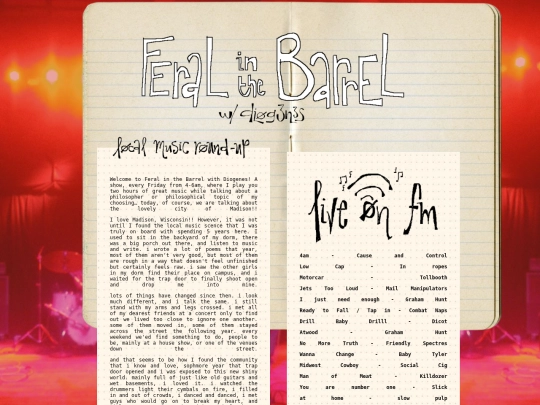 Feral in the Barrel
w/ diog3n3s
local music round-up
Welcome to Feral in the Barrel with Diogenes! A
show, every Friday from 4-6am, where I play you
two hours of great music while talking about a
philosopher or philosophical topic of my
choosing… today, of course, we are talking about
the lovely city of Madison!!
I love Madison, Wisconsin!! However, it was not
until I found the local music scence that I was
truly on board with spending 5 years here. I
used to sit in the backyard of my dorm, there
was a big porch out there, and listen to music
and write. i wrote a lot of poems that year,
most of them aren't very good, but most of them
are rough in a way that doesn't feel unfinished
but certainly feels raw. i saw the other girls
in my dorm find their place on campus, and i
waited for the trap door to finally shoot open
and drop me into mine.
lots of things have changed since then. i look
much different, and i talk the same. i still
stand with my arms and legs crossed. i met all
of my dearest friends at a concert only to find
out we lived too close to ignore one another.
some of them moved in, some of them stayed
across the street the following year. every
weekend we'd find something to do, people to
be, mainly at a house show, or one of the venues
down the street.
and that seems to be how I found the community
that i know and love, sophmore year that trap
door opened and i was exposed to this new shiny
world. mainly full of just like old guitars and
wet basements, i loved it. i watched the
drummers light their cymbals on fire, i filled
in and out of crowds, i danced and danced, i met
guys who would go on to break my heart, and
live on fm
4am - Cause and Control
Low Cap - In ropes
Motorcar - Tollbooth
Jets Too Loud - Mail Manipulators
I just need enough - Graham Hunt
Ready to Fall / Tap in - Combat Naps
Drill Baby Drilll - Dicot
Atwood - Graham Hunt
No More Truth - Friendly Spectres
Wanna Change - Baby Tyler
Midwest Cowboy - Social Cig
Man of Meat - Killdozer
You are number one - Slick
at home - slow pulp